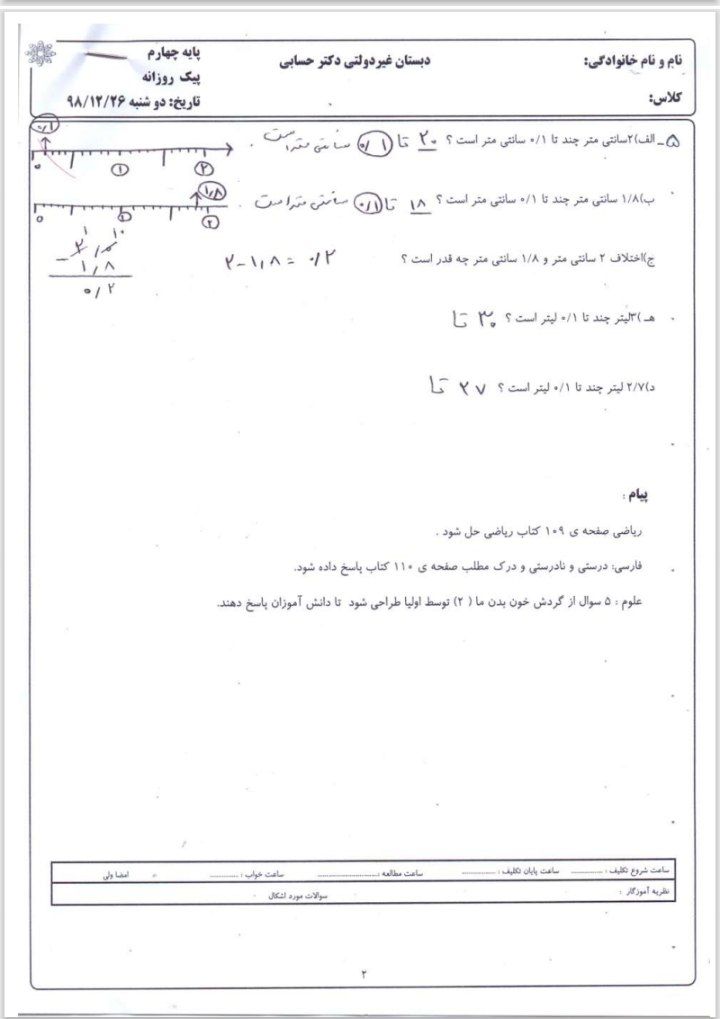 نام و نام خانوادگی: دبستان غیردولتی دکتر حسابی پایه چهارم
پیک روزانه
کلاس: تاریخ: دو شنبه ۹۸/۱۲/۲۶
۵_ الف)۲سانتی متر چند تا ۰/۱ سانتی متر است ؟ ۲۰ تا ۰/۱ سانتی متر است.
۰/۱
۰ ۱ ۲
ب)۱/۸ سانتی متر چند تا ۰/۱ سانتی متر است ؟ ۱۸ تا ۰/۱ سانتی متر است.
۱/۸
۰ ۱ ۲
ج)اختلاف ۲ سانتی متر و ۱/۸ سانتی متر چه قدر است ؟ ۲ - ۱/۸ = ۰/۲
۱ ۱۰
۲/۰
- ۱/۸
۰/۲
هـ )۳لیتر چند تا ۰/۱ لیتر است ؟ ۳۰ تا
د)۲/۷ لیتر چند تا ۰/۱ لیتر است ؟ ۲۷ تا
پیام :
ریاضی صفحه ی ۱۰۹ کتاب ریاضی حل شود .
فارسی: درستی و نادرستی و درک مطلب صفحه ی ۱۱۰ کتاب پاسخ داده شود.
علوم : ۵ سوال از گردش خون بدن ما ( ۲) توسط اولیا طراحی شود تا دانش آموزان پاسخ دهند.
ساعت شروع تکلیف : .............. ساعت پایان تکلیف : .............. ساعت مطالعه : .......................... ساعت خواب : .............. امضا ولی
نظریه آموزگار : سوالات مورد اشکال
۲